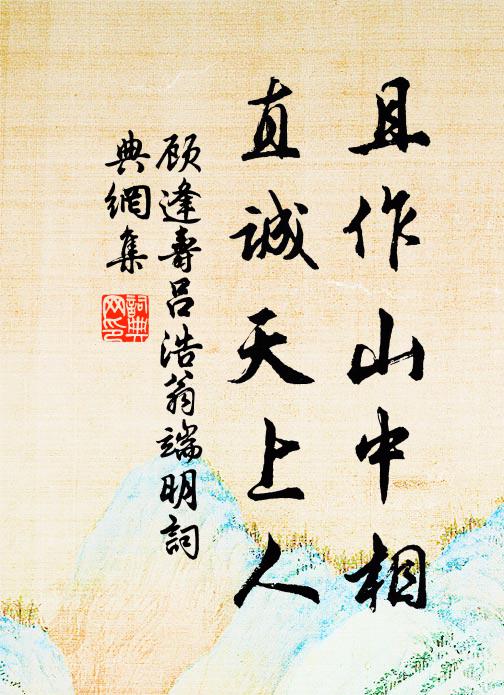 且作山中相
直诚天上人
顾逢寿吕浩翁端明词
典網集
詞典
网印